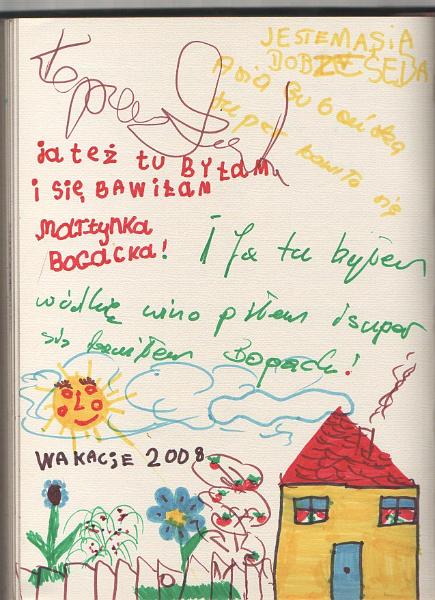 JESTEM ASIA
DOBZE
Asia
super bawiła się
ja też tu BYŁAM
i SIĘ BAWIŁAM
MARTYNKA
BOGACKA!
I Ja tu byłem
wódkę wino piłem i super
się bawiłem Bogacki!
WAKACJE 2008